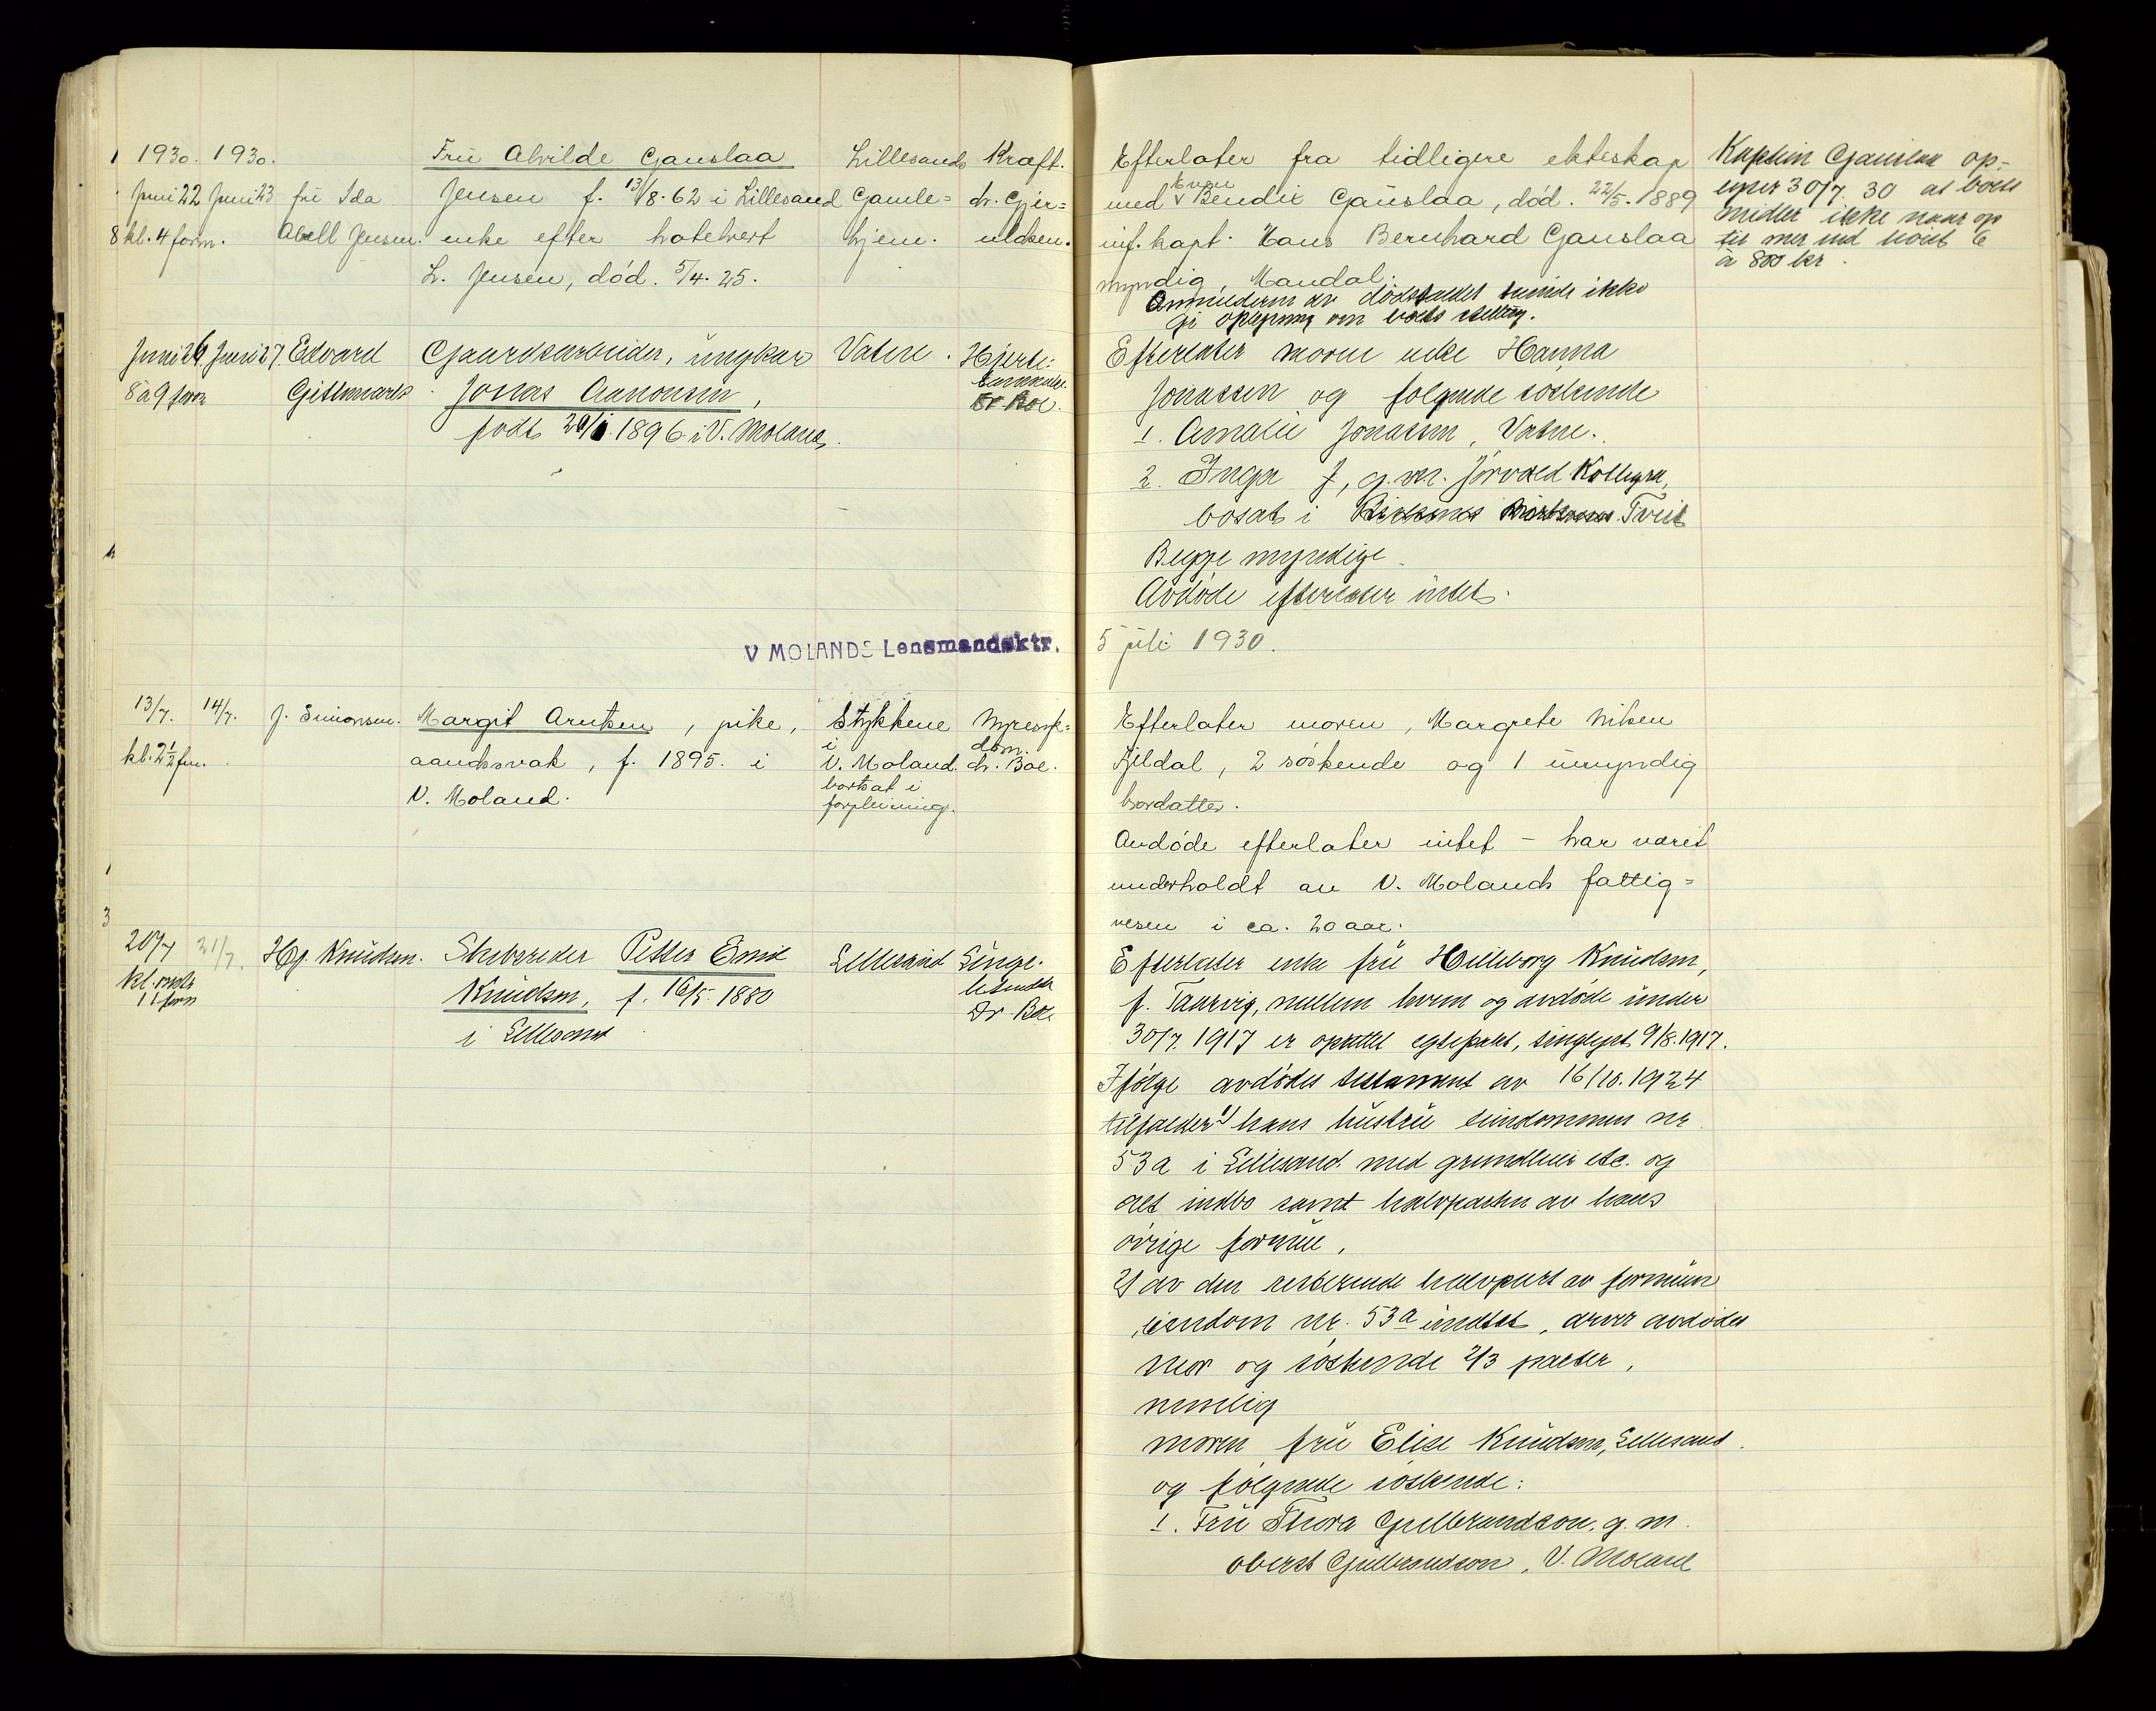 1 1930. 1930. Fru Alvilde Gauslaa Lillesands Kræft.
Juni 22 Juni 23 fru Ida Jensen f. 13/8. 62 i Lillesand Gamle= dr. Gjer=
8 kl. 4 form. Abell Jensen. enke efter hotelvert hjem. uldsen.
L. Jensen, död. 5/4. 25.
Juni 26 Juni 27. Edvard Gaardsarbeider, ungkar Vatne. Hjerte-
8 a 9 form Gitlmark Jonas Aanonsen, Dr Boe.
født 29/1. 1896 i V. Moland.
V MOLANDS Lensmandsktr.
13/7. 14/7. J. Simonsen. Margit Arntzen, pike, Stykkene Nyresyk=
i dom.
kl. 2 1/2 fm. aandssvak, f. 1895. i V. Moland. dr. Boe.
V. Moland. bortsat i
forpleining.
3
20/7 21/7. Hj. Knudsen. Skibsreder Petter Emil Lillesand Lunge-
kl. 11 form Knudsen, f. 16/5. 1880 Dr. Boe
i Lillesand
Efterlater fra tidligere ekteskap
med Bendix Gauslaa, död. 22/5. 1889
inf. kapt. Hans Bernhard Gauslaa
myndig, Mandal.
Anmelderen av dødsfaldet kunde ikke
gi oplysning om boets stilling.
Kaptein Gauslaa op-
lyser 30/7. 30 at boets
midler ikke naar op
til mer end höist 6
a 800 kr.
Efterlater moren enke Hanna
Jonassen og følgende söskende
1. Amalie Jonassen, Vatne.
2. Inga J, g.m. Jörvald
bosat i Tveit
Begge myndige.
Avdöde efterlater intet.
5 juli 1930.
Efterlater moren, Margrete Nilsen
Fjeldal, 2 söskende og 1 umyndig
brordatter.
Avdöde efterlater intet - har været
underholdt av V. Molands fattig=
vesen i ca. 20 aar.
Efterlater enke fru Hilleborg Knudsen,
f. Taurvig, mellem hvem og avdöde under
30/7. 1917 er oprettet egtepakt, tinglyst 9/8. 1917.
Ifölge avdödes testament av 16/10. 1924
tilfalder 1) hans hustru eiendommen nr.
53a i Lillesand med grundleie etc. og
alt indbo samt halvparten av hans
övrige formue.
2) av den resterende halvpart av formuen
eiendom nr. 53a undtat, arver avdödes
mor og söskende 2/3 parter,
nemlig
moren fru Elise Knudsen, Lillesand.
og følgende söskende:
1. Fru Thora Gulbrandson, g. m.
oberst Gulbrandson, V. Moland